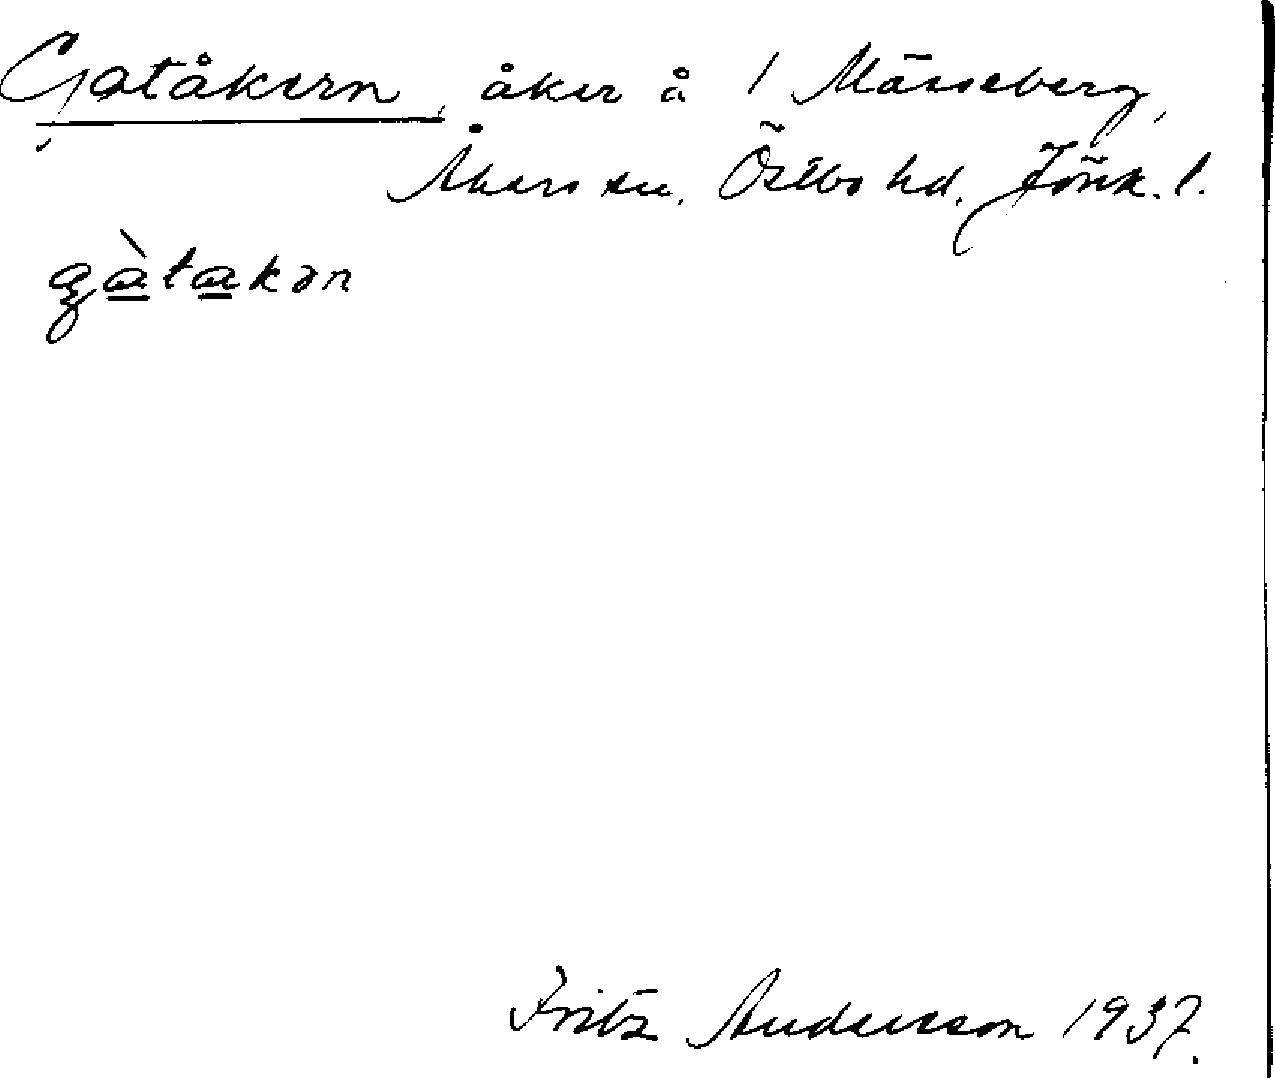 Gatåkern, åker å 1 Mässeberg,
Åkers sn. Östbo hd. Jönk. l.
gàtakən
Fritz Andersson 1937.